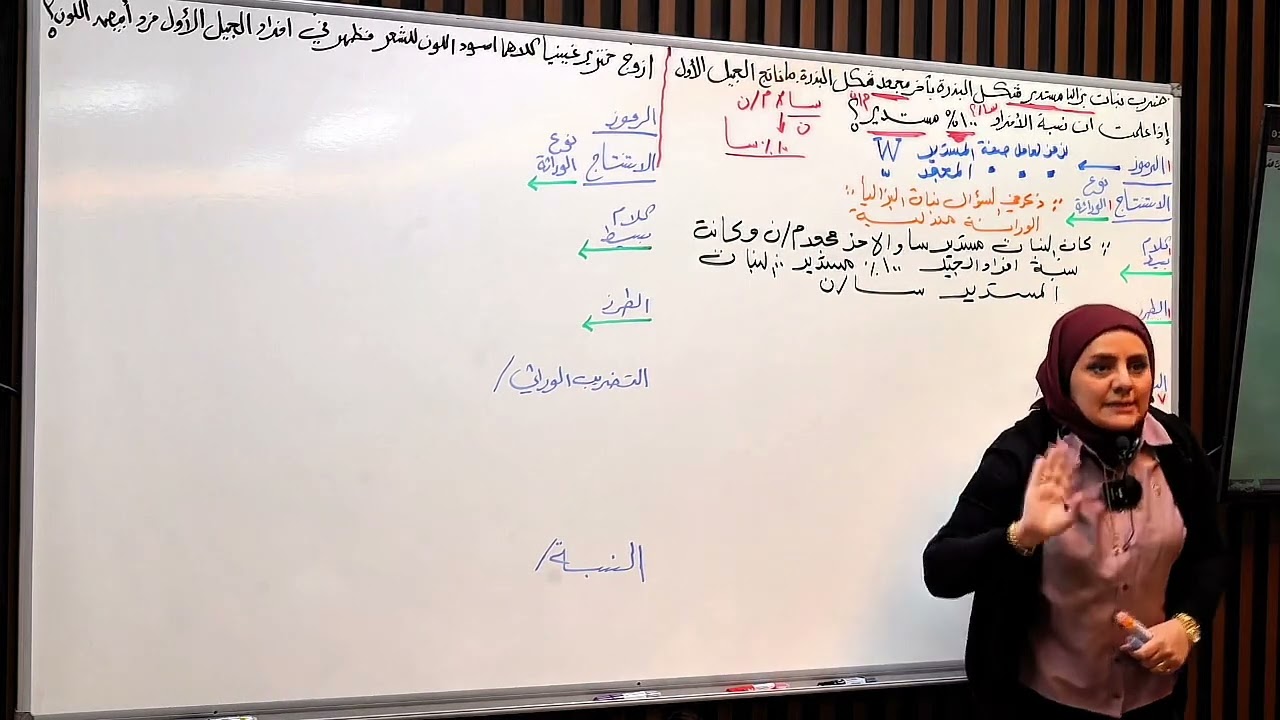 ضرب نبات بزاليا مستدير شكل البذرة بآخر مجعد شكل البذرة. ما ناتج الجيل الأول
إذا علمت ان نسبة الأفراد ١٠٠٪ مستدير؟
سا x م/ن
ن
١٠٠٪ سا
الرموز
نرمز لعامل صفة المستدير W
المجعد w
الاستنتاج
نوع الوراثة
∵ ذكر في السؤال نبات البزاليا ∴
الوراثة مندلية
كلام بسيط
∵ كان النبات مستدير سا والاخر مجعد م/ن وكانت
نسبة افراد الجيل ١٠٠٪ مستدير ∴ النبات
المستدير سا/ن
الطرز
ازوج خنزير غينيا كلاهما اسود اللون للشعر فظهر في افراد الجيل الأول فرد أبيض اللون؟
الرموز
الاستنتاج
نوع الوراثة
كلام بسيط
الطرز
التضريب الوراثي/
النسبة/